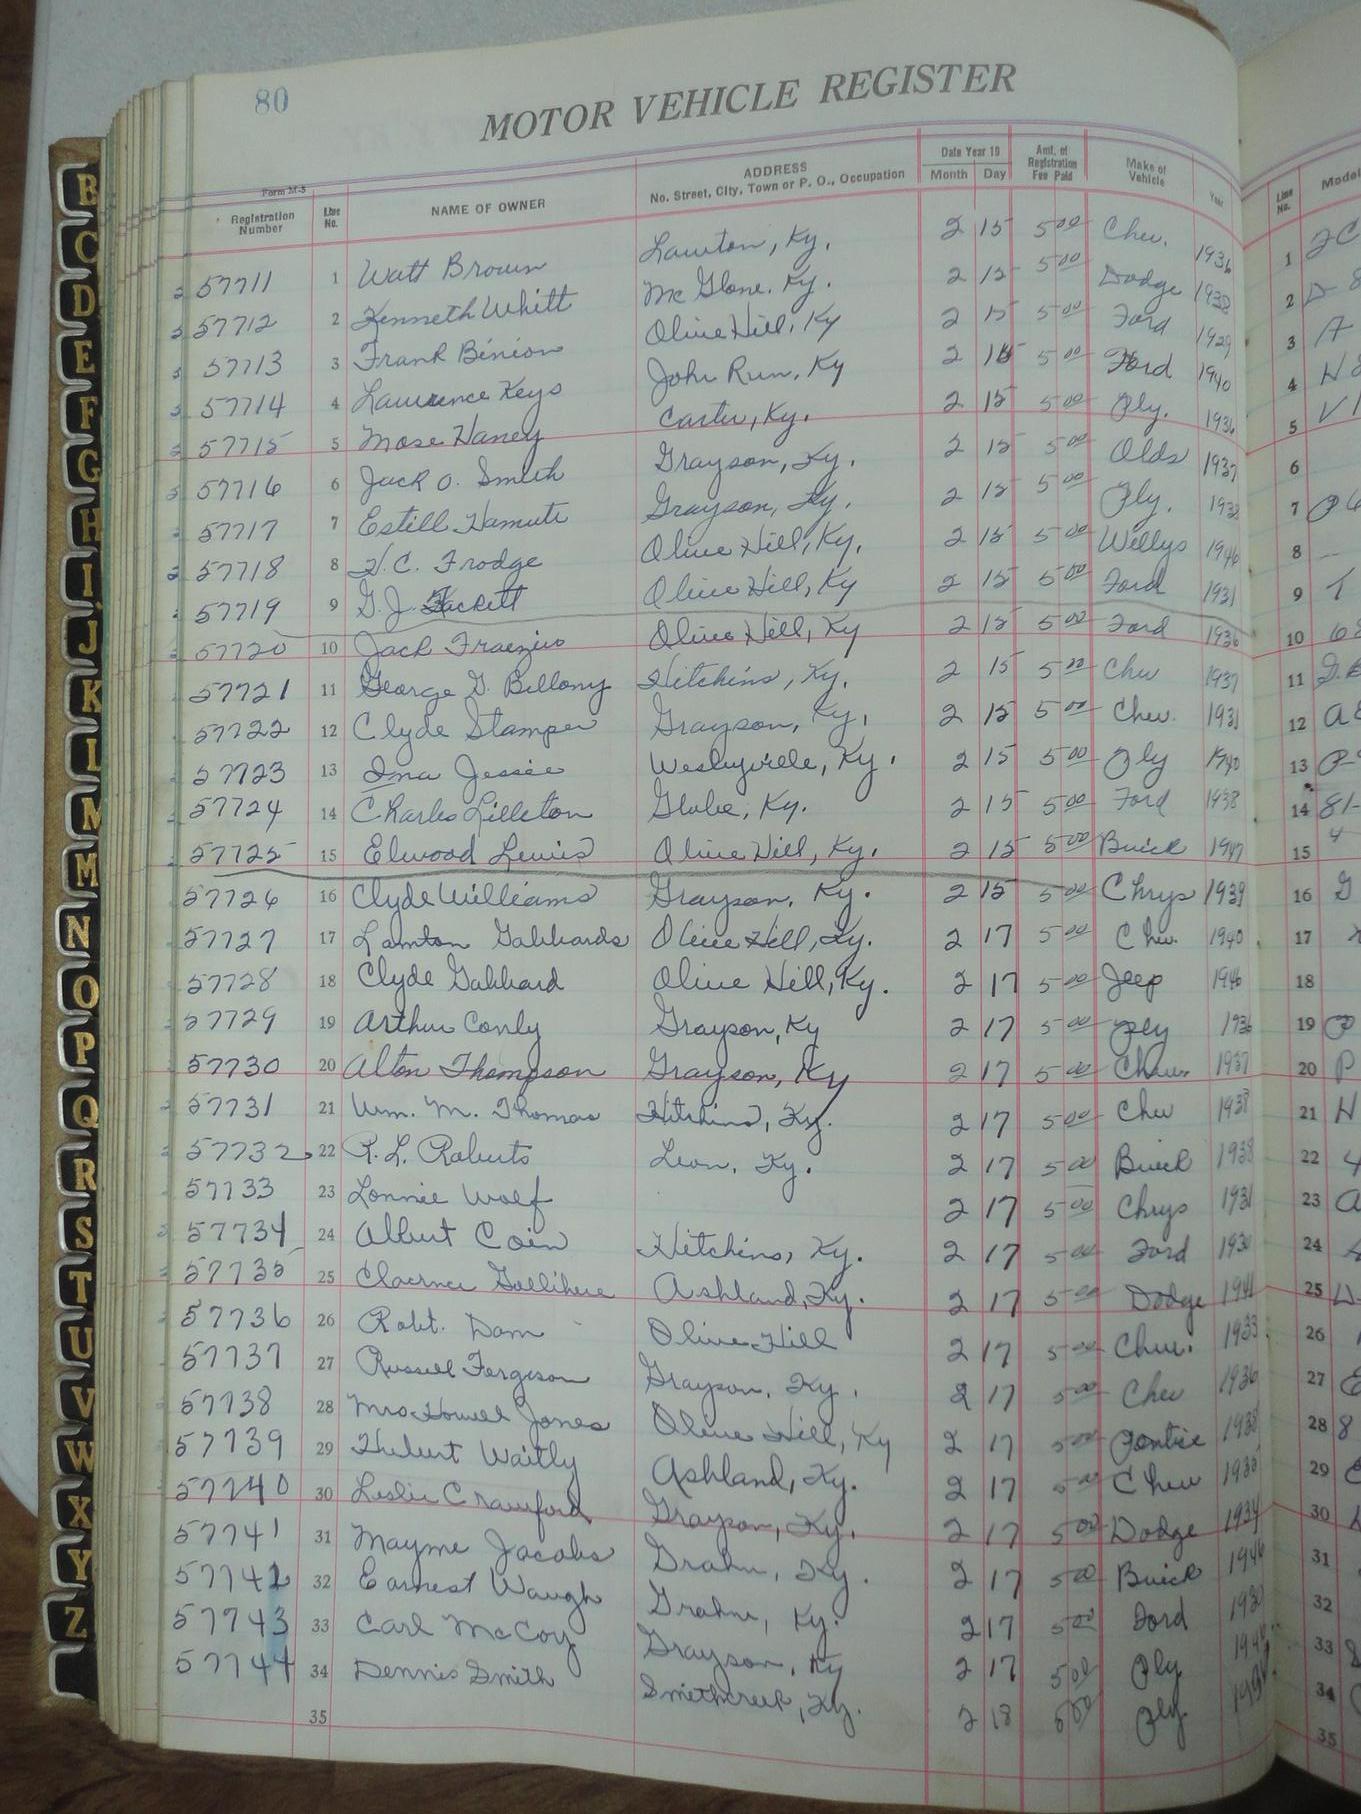 80
MOTOR VEHICLE REGISTER
Form M-5
Registration Number Line No. NAME OF OWNER ADDRESS No. Street, City, Town or P. O., Occupation Date Year 19 Month Day Amt. of Registration Fee Paid Make of Vehicle Year Line No. Model
57711 1 Watt Brown Lawton, Ky. 2 15 5 00 Chev. 1936 1
57712 2 Kenneth Whitt McGlone. Ky. 2 15 5 00 Dodge 1938 2
57713 3 Frank Binion Olive Hill, Ky 2 15 5 00 Ford 1929 3 A
57714 4 Lawrence Keys John Run, Ky 2 15 5 00 Ford 1940 4
57715 5 Mose Haney Carter, Ky. 2 15 5 00 Ply. 1936 5
57716 6 Jack O. Smith Grayson, Ky. 2 15 5 00 Olds 1937 6
57717 7 Estill Grayson, Ky. 2 15 5 00 Ply. 1938 7
57718 8 H.C. Frodge Olive Hill, Ky. 2 15 5 00 Willys 1946 8
57719 9 G.J. Hackett Olive Hill, Ky 2 15 5 00 Ford 1931 9
57720 10 Jack Olive Hill, Ky 2 15 5 00 Ford 1936 10
57721 11 George G. Bellomy Hitchins, Ky. 2 15 5 00 Chev 1937 11
57722 12 Clyde Stamper Grayson, Ky. 2 15 5 00 Chev. 1931 12
57723 13 Ima Jessie Wesleyville, Ky. 2 15 5 00 Ply 1940 13
57724 14 Charles Lilleton Globe, Ky. 2 15 5 00 Ford 1938 14 81-
57725 15 Elwood Lewis Olive Hill, Ky. 2 15 5 00 Buick 1947 15
57726 16 Clyde Williams Grayson, Ky. 2 15 5 00 Chrys 1939 16 G
57727 17 Gabbards Olive Hill, Ky. 2 17 5 00 Chev. 1940 17
57728 18 Clyde Gabbard Olive Hill, Ky. 2 17 5 00 Jeep 1946 18
57729 19 Arthur Conly Grayson, Ky 2 17 5 00 Ply 1936 19
57730 20 Alton Thompson Grayson, Ky 2 17 5 00 Chev. 1937 20 P
57731 21 Wm. M. Thomas Hitchins, Ky. 2 17 5 00 Chev 1938 21 H
57732 22 R.L. Roberts Leon, Ky. 2 17 5 00 Buick 1938 22 4
57733 23 Lonnie Wolf 2 17 5 00 Chrys 1931 23
57734 24 Albert Coin Hitchins, Ky. 2 17 5 00 Ford 1930 24
57735 25 Clarence Gollihue Ashland, Ky. 2 17 5 00 Dodge 1941 25
57736 26 Robt. Dam Olive Hill 2 17 5 00 Chev. 1933 26
57737 27 Russell Ferguson Grayson, Ky. 2 17 5 00 Chev 1936 27
57738 28 Mrs Howell Jones Olive Hill, Ky 2 17 5 00 Pontic 1938 28 8
57739 29 Hubert Waitly Ashland, Ky. 2 17 5 00 Chev 1935 29
57740 30 Leslie Crawford Grayson, Ky. 2 17 5 00 Dodge 1934 30
57741 31 Mayme Jacobs Grahn, Ky. 2 17 5 00 Buick 1946 31
57742 32 Earnest Waugh Grahn, Ky. 2 17 5 00 Ford 1930 32
57743 33 Carl McCoy Grayson, Ky 2 17 5 00 Ply 33
57744 34 Dennis Smith Smithcreek, Ky. 2 18 5 00 Ply. 34
35 35
B
C
D
E
F
G
H
I
J
K
L
M
M
N
O
P
Q
R
S
T
U
V
W
X
Y
Z